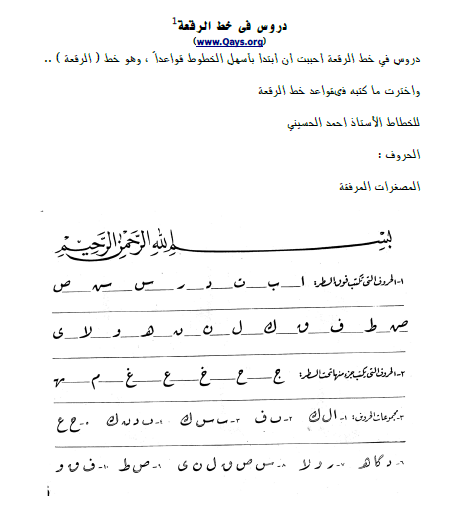 دروس في خط الرقعة1
(www.Qays.org)
دروس في خط الرقعة احببت ان ابتدأ بأسهل الخطوط قواعداً ، وهو خط ( الرقعة ) ..
واخترت ما كتبه فىقواعد خط الرقعة
للخطاط الأستاذ احمد الحسيني
الحروف :
المصغرات المرفقة
بسم الله الرحمن الرحيم
١- الحروف التي تكتب فوق السطر: ا ب ت د ر س س ص
ص ط ف ق ك ل ن ن ه و لا ى
٢- الحروف التي يكتب جزء منها تحت السطر: ج ح خ ع غ م ه
٣- مجموعات الحروف: ١- ا ل ك ٢- ب ف ٣- س ك ٤- ب د ن ك ٥- ح ع
٦- د ك ا ه ٧- ر و لا ٨- س ص ق ل ن ى ٩- ص ط ١٠- ف ق و
أ